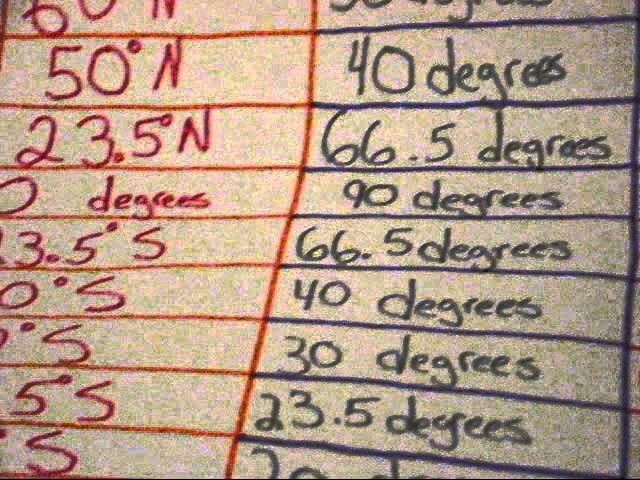 60°N 30 degrees
50°N 40 degrees
23.5°N 66.5 degrees
0 degrees 90 degrees
3.5°S 66.5 degrees
0°S 40 degrees
°S 30 degrees
5°S 23.5 degrees
°S